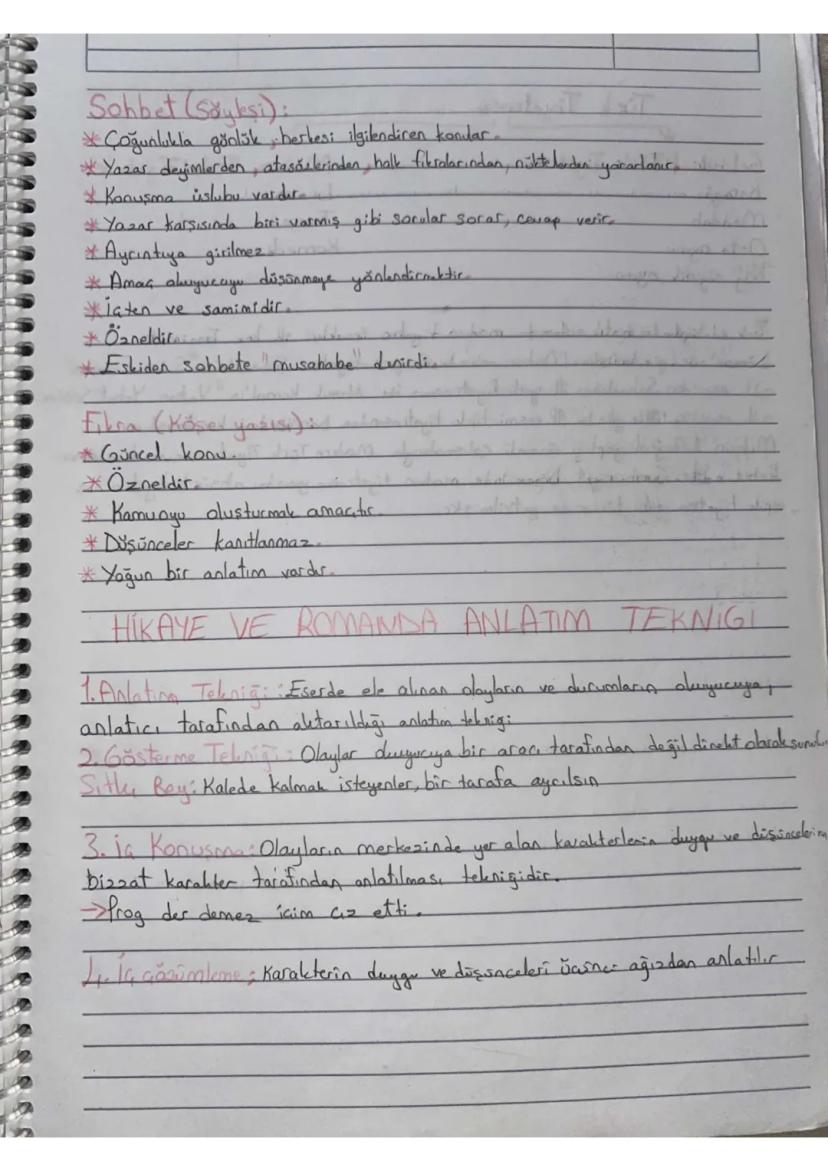 Sohbet (Söyleşi):
* Çoğunlukla günlük, herkesi ilgilendiren konular.
* Yazar deyimlerden, atasözlerinden, halk fıkralarından, nüktelerden yararlanır.
* Konuşma üslubu vardır.
* Yazar karşısında biri varmış gibi sorular sorar, cevap verir.
* Ayrıntıya girilmez.
* Amaç okuyucuyu düşünmeye yönlendirmektir.
* İçten ve samimidir.
* Özneldir.
* Eskiden sohbete "musahabe" denirdi.
Fıkra (Köşe yazısı):
* Güncel konu.
* Özneldir.
* Kamuoyu oluşturmak amaçtır.
* Düşünceler kanıtlanmaz.
* Yoğun bir anlatım vardır.
HİKAYE VE ROMANDA ANLATIM TEKNİĞİ
1. Anlatma Tekniği: Eserde ele alınan olayların ve durumların okuyucuya,
anlatıcı tarafından aktarıldığı anlatım tekniği
2. Gösterme Tekniği: Olaylar okuyucuya bir aracı tarafından değil direkt olarak
Sıtkı Bey: Kalede kalmak isteyenler, bir tarafa ayrılsın
3. İç Konuşma: Olayların merkezinde yer alan karakterlerin duygu ve düşüncelerinin
bizzat karakter tarafından anlatılması tekniğidir.
→ der demez içim cız etti.
4. İç çözümleme; Karakterin duygu ve düşünceleri üçüncü ağızdan anlatılır